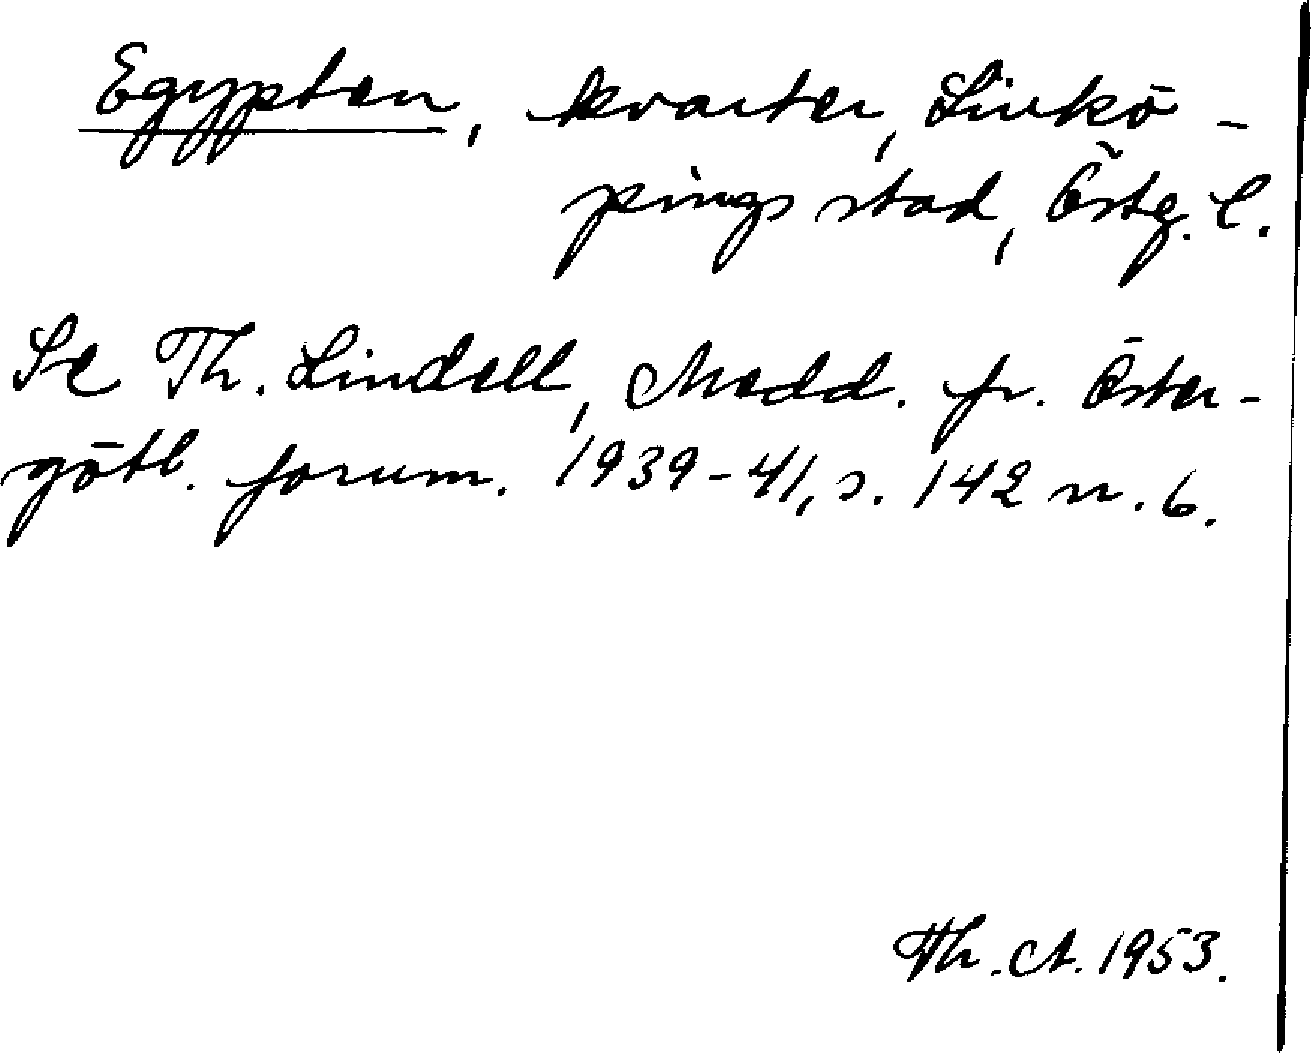 Egypten, kvarter, Linkö-
pings stad, Östg. l.
Se Th. Lindell, Medd. fr. Öster-
götl. fornm. 1939-41, s. 142 n. 6.
Th. A. 1953.